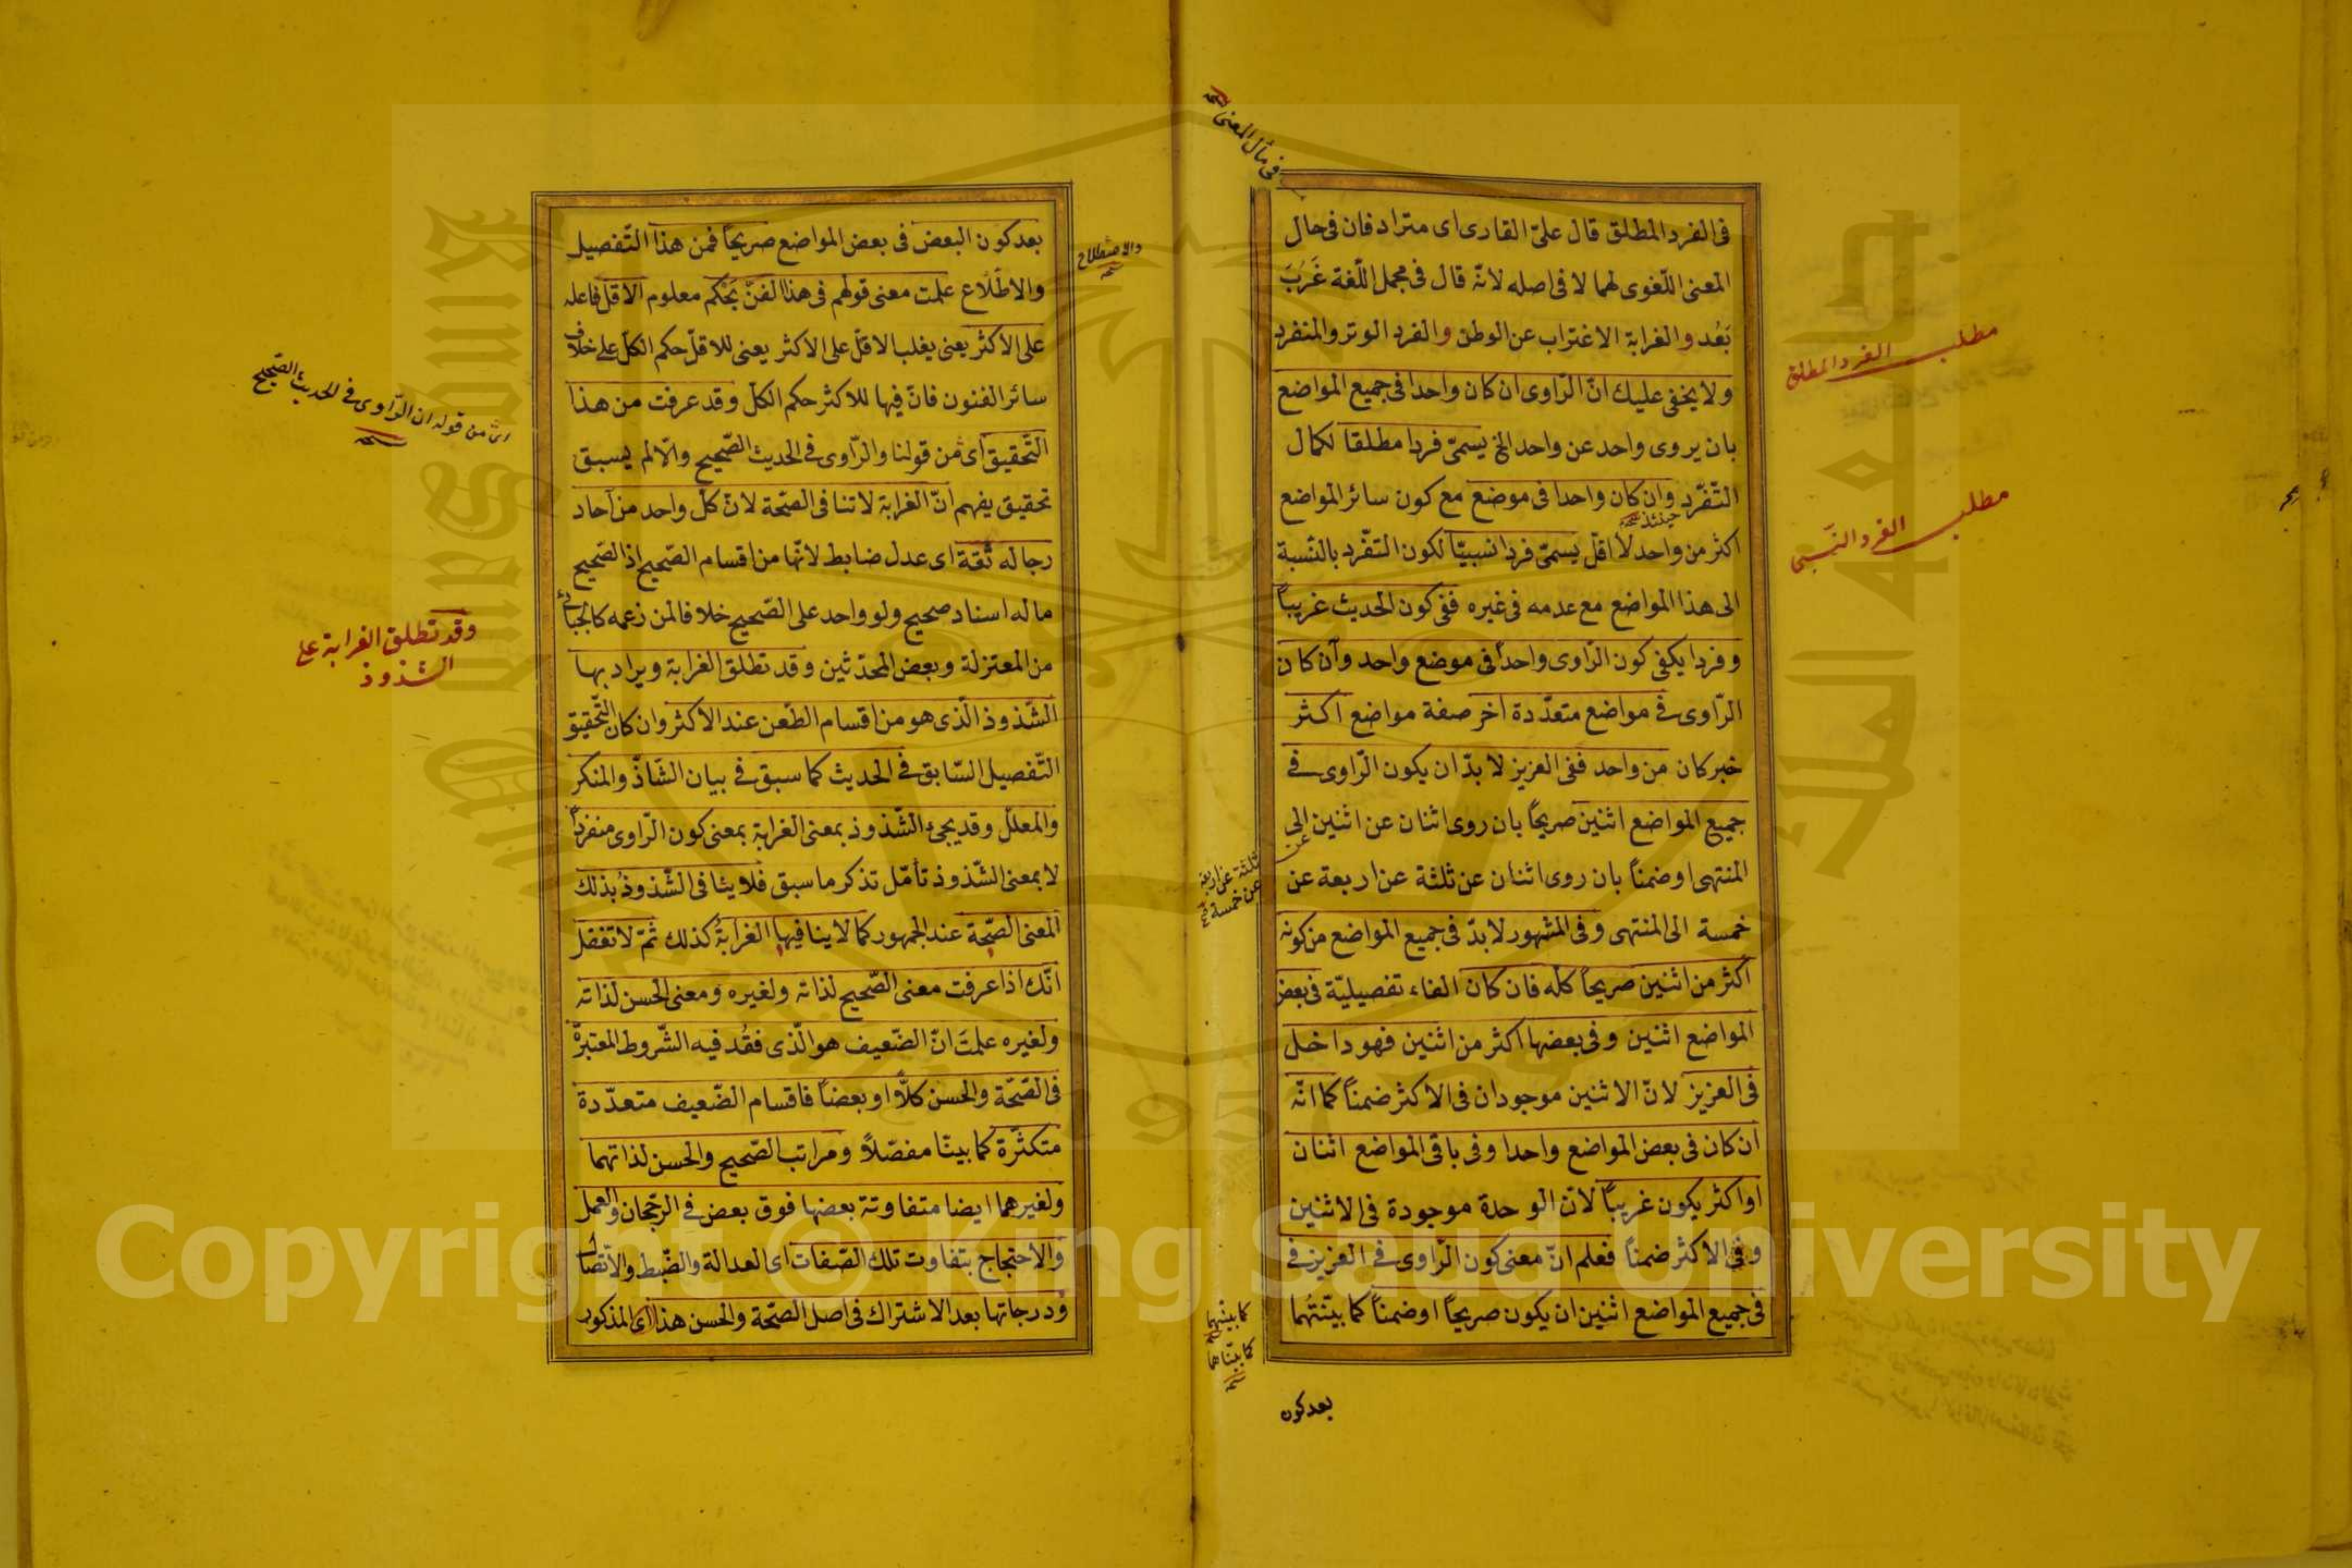 فى الفرد المطلق قال علىّ القارى اى مترادفان فى حال
المعنى اللّغوى لهما لا فى اصله لانّه قال فى مجمل اللّغة غَرَبَ
بَعُد والغرابة الاغتراب عن الوطن والفرد الوتر والمنفرد
ولا يخفى عليك انّ الرّاوى ان كان واحدا فى جميع المواضع
بان يروى واحد عن واحد الخ يسمّى فردا مطلقا لكمال
التّفرّد وان كان واحدا فى موضع مع كون سائر المواضع
حينئذ صح
اكثر من واحد لا اقل يسمّى فردا نسبيّا لكون التفّرد بالنّسبة
الى هذا المواضع مع عدمه فى غيره ففى كون الحديث غريباً
وفردا يكفى كون الرّاوى واحداً فى موضع واحد وان كان
الرّاوى فى مواضع متعدّدة اخر صفة مواضع اكثر
خبر كان من واحد ففى العزيز لا بدّ ان يكون الرّاوى فى
جميع المواضع اثنين صريحًا بان روى اثنان عن اثنين الى
المنتهى او ضمناً بان روى اثنان عن ثلثة عن اربعة عن
خمسة الى المنتهى وفى المشهور لا بدّ فى جميع المواضع من كونه
اكثر من اثنين صريحًا كلّه فان كان الفاء تفصيليّة فى بعض
المواضع اثنين وفى بعضها اكثر من اثنين فهو داخل
فى العزيز لانّ الاثنين موجودان فى الاكثر ضمناً كما انّه
ان كان فى بعض المواضع واحدا وفى باقى المواضع اثنان
او اكثر يكون غريباً لانّ الوحدة موجودة فى الاثنين
وفى الاكثر ضمناً فعلم انّ معنى كون الرّاوى فى العزيز فى
فى جميع المواضع اثنين ان يكون صريحًا او ضمناً كما بيّنتُهما
بعد كون
فى مآل المعنى
مطلب الفرد المطلق
مطلب الفرد النسبى
ثلثة عن اربعة
عن خمسة
كما بينتهما
كما بيّناهما
بعد كون البعض فى بعض المواضع صريحًا فمن هذا التّفصيل
والاطّلاع علمت معنى قولهم فى هذا الفنّ يَحْكم معلوم الاقل فاعله
على الاكثر يعنى يغلب الاقلّ على الاكثر يعنى للاقلّ حكم الكلّ على خلاف
سائر الفنون فانّ فيها للاكثر حكم الكل وقد عرفت من هذا
التّحقيق اى من قولنا والرّاوى فى الحديث الصّحيح والّا لم يسبق
تحقيق يفهم انّ الغرابة لا تنافى الصّحة لانّ كلّ واحد من آحاد
رجاله ثقة اى عدل ضابط لانّها من اقسام الصّحيح اذ الصّحيح
ما له اسناد صحيح ولو واحد على الصّحيح خلافا لمن زعمه كالجبائى
من المعتزلة وبعض المحدّثين وقد تطلق الغرابة ويراد بها
الشّذوذ الّذى هو من اقسام الطّعن عند الاكثر وان كان التّحقيق
التّفصيل السّابق فى الحديث كما سبق فى بيان الشّاذّ والمنكر
والمعلّل وقد يجىء الشّذوذ بمعنى الغرابة بمعنى كون الرّاوى منفرداً
لا بمعنى الشّذوذ تأمّل تذكر ما سبق فلا ينافى الشّذوذُ بذلك
المعنى الصّحة عند الجمهور كما لا ينافيها الغرابةُ كذلك ثمّ لا تغفل
انّك اذا عرفت معنى الصّحيح لذاته ولغيره ومعنى الحسن لذاته
ولغيره علمتَ انّ الضّعيف هو الّذى فقُد فيه الشّروط المعتبرة
فى الصّحّة والحسن كلًّا او بعضاً فاقسام الضّعيف متعدّدة
متكثّرة كما بيّنا مفصّلاً ومراتب الصّحيح والحسن لذاتهما
ولغيرهما ايضا متفاوتة بعضها فوق بعض فى الرّجحان والعمل
والاحتجاج بتفاوت تلك الصّفات اى العدالة والضّبط والاتّصال
ودرجاتها بعد الاشتراك فى اصل الصّحّة والحسن هذا اى المذكور
والاصطلاح
من قوله ان الرّاوى فى الحديث الصّحيح
وقد تطلق الغرابة على
الشذوذ
Copyright © King Saud University
King Saud University
جامعة الملك سعود
1957